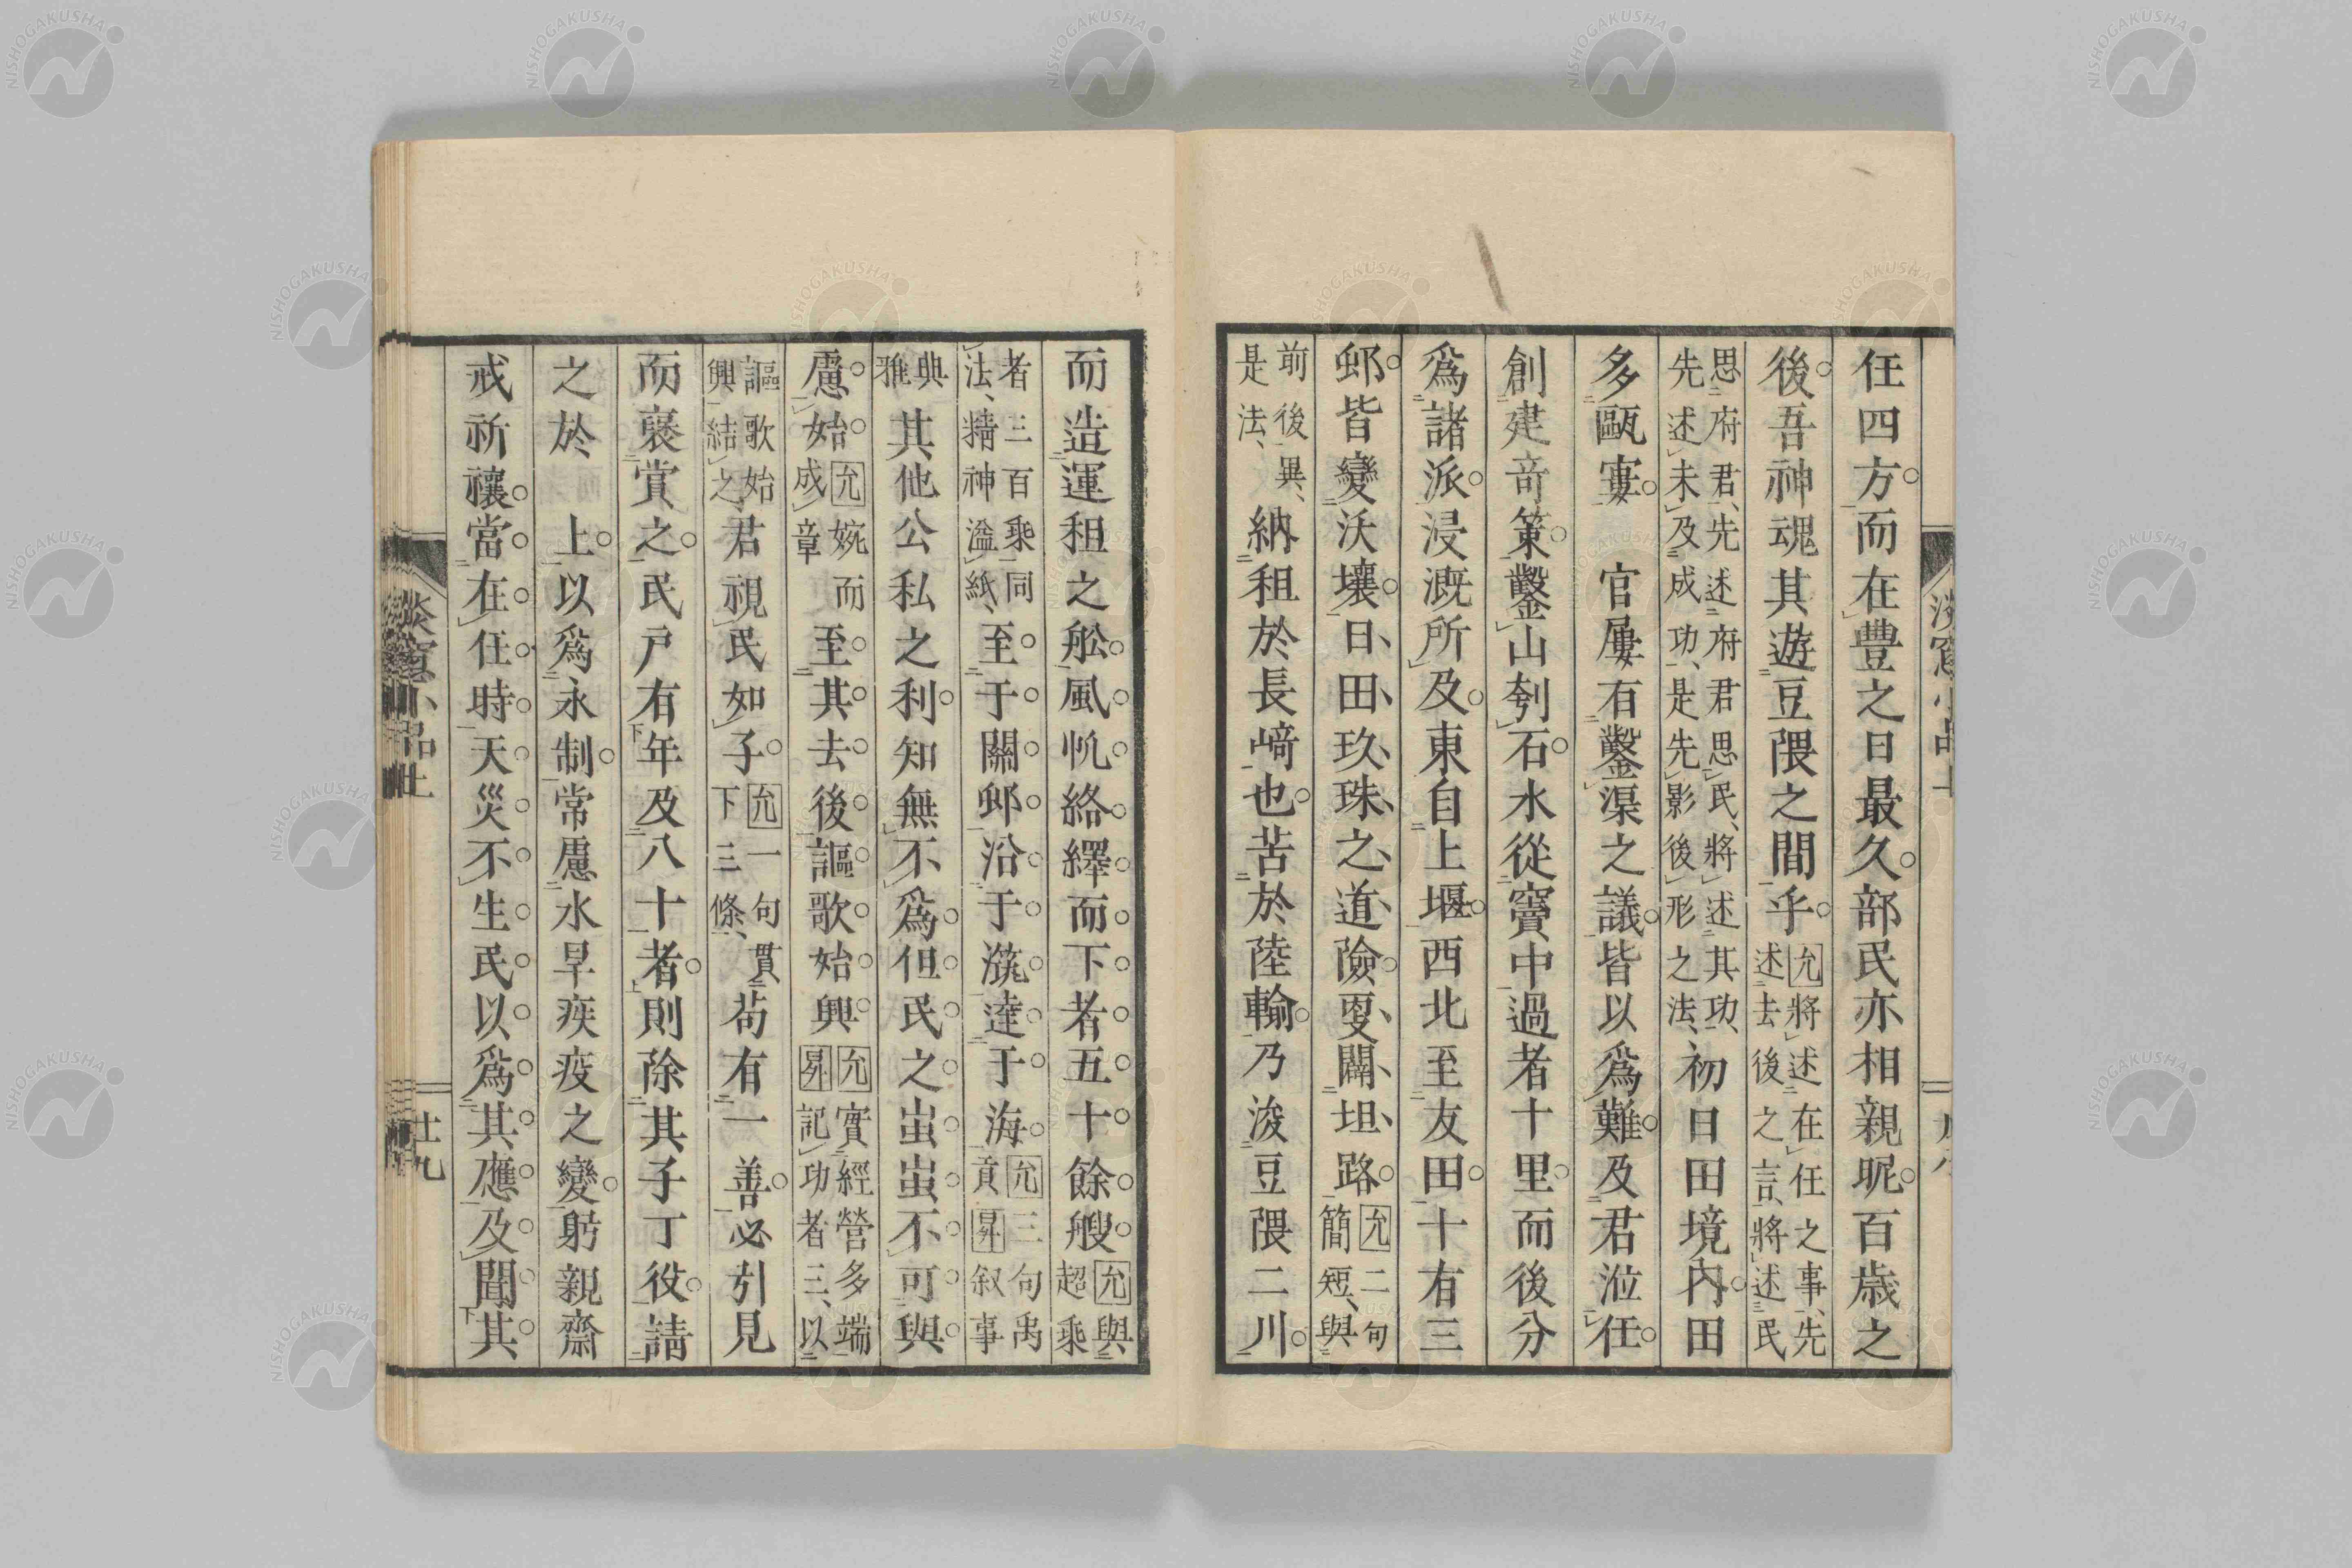 任四方。而在豐之日最久。部民亦相親昵。百歲之
後。吾神魂其遊豆隈之間乎。允將述在任之事、先
述去後之言、將述民
思府君、先述府君思民、將述其功、
先述未及成功、是先影後形之法、初日田境內。田
多甌寠。官屢有鑿渠之議。皆以爲難。及君涖任。
創建奇策。鑿山刳石。水從竇中過者十里。而後分
爲諸派。浸漑所及。東自上堰。西北至友田。十有三
邨。皆變沃壤。日、田、玖、珠、之、道、險。更、闢、坦、路。允二句
簡短、與
前後異、
是法、納租於長﨑也。苦於陸輸。乃浚豆隈二川。
而造運租之舩。風帆絡繹而下者。五十餘艘。允與
超乘
者三百乘同
法、精神溢紙、至于關邨。沿于瀨。達于海。允三句禹
貢昇叙事
典
雅其他公私之利。知無不爲。但民之蚩蚩。不可與
慮。始。允婉而
成章至其去後。謳歌始興。允實經營多端
昇記功者三、以
謳歌始
興結之君視民如子。允一句貫
下三條、苟有一善。必引見
而襃賞之。民戶有年及八十者。則除其子丁役。請
之於　上。以爲永制。常慮水旱疾疫之變。躬親齋
戒祈禳。當在任時。天災不生。民以爲其應。及聞其
淡窻小品上
廿九